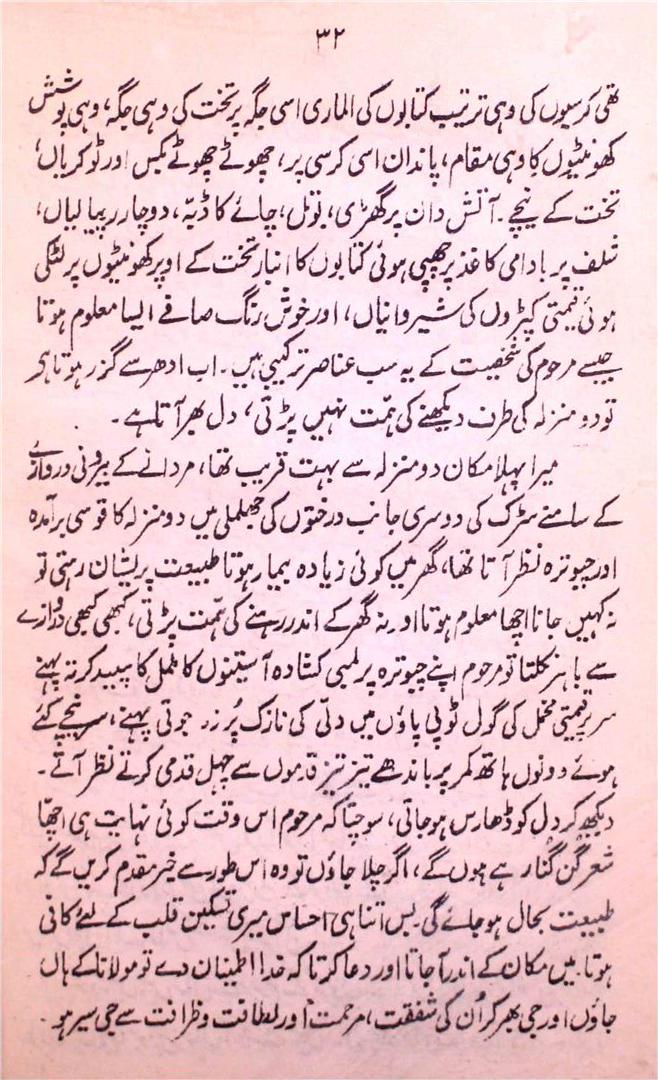 ۳۲
تھی کرسیوں کی وہی ترتیب کتابوں کی الماری اسی جگہ پر تخت کی وہی جگہ، وہی پوشش
کھونٹیوں کا وہی مقام، پاندان اسی کرسی پر، چھوٹے چھوٹے بکس اور ٹوکریاں،
تخت کے نیچے۔ آتش دان پر گھڑی، بوتل، چائے کا ڈبہ، دوچار پیالیاں،
شلف پر بادامی کاغذ پر چھپی ہوئی کتابوں کا انبار تخت کے اوپر کھونٹیوں پر لٹکی
ہوئی قیمتی کپڑوں کی شیروانیاں، اور خوش رنگ صافے ایسا معلوم ہوتا
جیسے مرحوم کی شخصیت کے یہ سب عناصر ترکیبی ہیں۔ اب ادھر سے گزر ہوتا ہے
تو دو منزلہ کی طرف دیکھنے کی ہمّت نہیں پڑتی، دل بھر آتا ہے۔
میرا پہلا مکان دو منزلہ سے بہت قریب تھا، مردانے کے بیرونی دروازے
کے سامنے سڑک کی دوسری جانب درختوں کی جھلملی میں دو منزلہ کا قوسی برآمدہ
اور چبوترہ نظر آتا تھا، گھر میں کوئی زیادہ بیمار ہوتا طبیعت پریشان رہتی تو
نہ کہیں جانا اچھا معلوم ہوتا اور نہ گھر کے اندر رہنے کی ہمّت پڑتی، کبھی کبھی دروازے
سے باہر نکلتا تو مرحوم اپنے چبوترہ پر لمبی کشادہ آستینوں کا ململ کا سپید کرتہ پہنے
سر پر قیمتی مخمل کی گول ٹوپی پاؤں میں دلّی کی نازک پُر زر جوتی پہنے، سر نیچے کئے
ہوئے دونوں ہاتھ کمر پر باندھے تیز تیز قدموں سے چہل قدمی کرتے نظر آتے۔
دیکھ کر دل کو ڈھارس ہو جاتی، سوچتا کہ مرحوم اس وقت کوئی نہایت ہی اچھا
شعر گنگنا رہے ہوں گے، اگر چلا جاؤں تو وہ اس طور سے خیر مقدم کریں گے کہ
طبیعت بحال ہو جائے گی۔ بس اتنا ہی احساس میری تسکین قلب کے لئے کافی
ہوتا۔ میں مکان کے اندر آجاتا اور دعا کرتا کہ خدا اطمینان دے تو مولانا کے ہاں
جاؤں اور جی بھر کر اُن کی شفقت، مرحمت اور لطافت و ظرافت سے جی سیر ہو۔